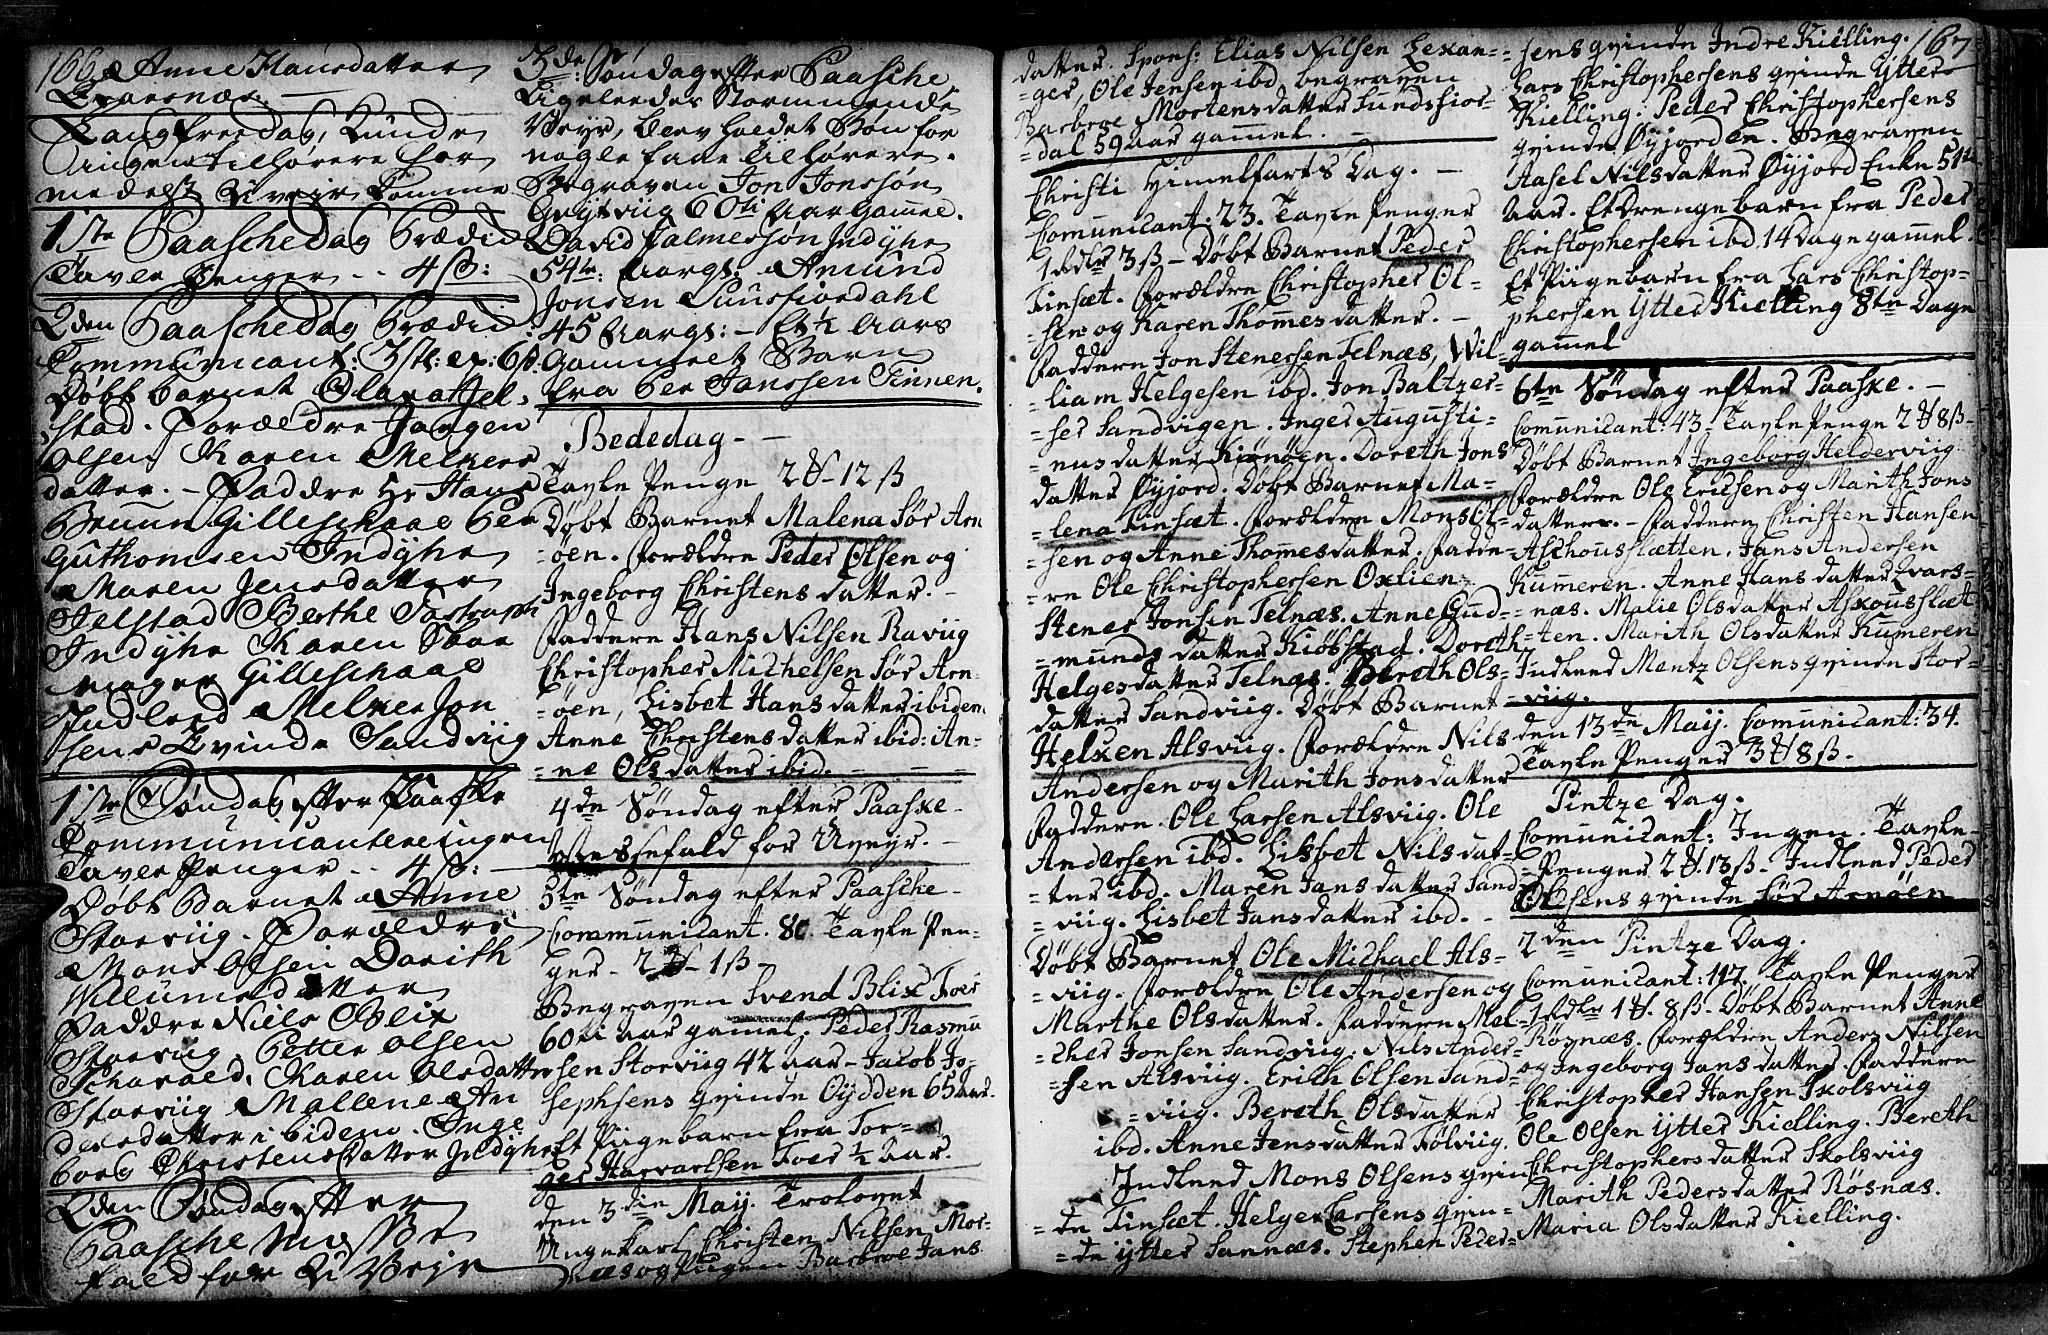 166. Anne Hansdatter
Evarsnæs. —
Langfreedag, Kunde
ingen tilhørere for
medelst Uveir komme
1ste Paaschedag Prædik
Tavle Penger .. 4 ß:
2den Paaschedag Prædik:
Communicant:
Døbt barnet Ola
stad. Forældre Jørgen
Olsen Karen Melkers
datter. – Faddre Hr Hans
Bruun Gilleschaae Per
Guthomsen Indyhr
Maren Jensdatter
Jelstad Berthe
Indyhr Karen
Gilleschaae
Indleed Melker Jon
sens Qvinde Sandviig
1ste Søndag efter Paaske
Communicantere ingen
Tavle Penger .. 4 ß:
Døbt Barnet Anne
Storviig. Forældre
Mons Olsen Dorith
Willumsdatter
Faddre Niels Blix
Storviig, Petter Olsen
Karen Olsdatter
Storviig Mallene An
dersdatter ibidem. Inge
borg Christensdatter Indyhr
2den Søndag efter
Paasche Messe
fald for Uveyr
3de: Søndag efter Paasche
Ligeleedes Stormmende
Veyr, blev holdet Bøn for
nogle faae Tilhørere.
Begraven Jon Jonssøn
Grytviig 60ti Aar Gammel.
David Falmersøn Indyhr
54re: Aargl: Amund
Jonsen Sunsfiordahl
45 Aargl: – Et ½ Aars
gammelt Barn
fra Per Janssen Finnen.
Bededag. –
Tavle Penge 2 ℔ 12 ß
Døbt Barnet Malena Sør Arn
=øen. Forældre Peder Olsen og
Ingeborg Christensdatter. –
Faddere Hans Nilsen Raviig
Christopher Michelsen Sør Arn-
=øen, Lisbet Hansdatter ibidem
Anne Christensdatter ibid: An-
=ne Olsdatter ibid. – – –
4de Søndag efter Paaske –
Messefald for Uveyr. –
5te Søndag efter Paasche –
Communicant. 80. Tavle Pen-
ger – 2 ℔ – 1 ß –
Begraven Svend Blix Foer
60ti aar gamel. Peder Rasmu
sen Storviig 42 aar – Jacob Jo-
sephsens qvinde Øydden 65 aar.
Et Piigebarn fra Tor-
ger Harvartsen Foer ½ Aar.
den 3die Maij. Trolovet
Ungekarl Christen Nilsen Mor-
=næs og Pigen Barbroe Jans
datter. Spons: Elias Nilsen Lexan-
=ger, Ole Jensen ibd. begraven
Barbroe Mortensdatter Sundsfior-
=dal 59 aar gammel. –
Christi Himelfarts Dag. –
Comunicant: 23. Tavle Penger
1 Rdlr 3 ß – Døbt Barnet Peder
Finsæt. Forældre Christopher Ol-
=sen og Karen Thomesdatter. –
Faddern Jon Stenersen Telnæs, Wil-
=liam Helgesen ibd. Jon Baltzer-
=sen Sandvigen. Inger Augusti-
=nusdatter Kionøen. Doreth Jons
datter Øyjord. Døbt Barnet Ma-
=lena Finsæt. Forældre Mons Ol-
sen og Anne Thomesdatter. Fadde-
=re Ole Christophersen Oxlien,
Stener Jonsen Telnæs. Anne Gud-
=munds datter Kiøbstad. Doreth
Helgesdatter Telnæs. Bereth Ols-
datter Sandviig. Døbt Barnet
Helxen Alsviig. Forældre Nils
Andersen og Marith Jonsdatter
Faddern. Ole Larsen Alsviig. Ole
Andersen ibd. Lisbet Nilsdat-
=ter ibd. Maren Jansdatter Sand
=viig. Lisbet Jansdatter ibd. –
Døbt Barnet Ole Michael Als-
=viig. Forældre Ole Andersen og
Marthe Olsdatter. Faddern Mel-
=cher Jonsen Sandviig. Nils Ander-
=sen Alsviig. Erich Olsen Sand-
=viig. Bereth Olsdatter
ibd. Anne Jensdatter Følviig.
Indleed Mons Olsens qvin
=de Finsæt. Helger Larsens qvin-
=de Ytter Sannæs. Stephen Peder-
sens qvinde Indre Kielling. 167
Lars Christophersens qvinde Ytter
Kielling. Peder Christophersens
qvinde, Øyjorden. Begraven
Aasel Nilsdatter Øyjord Enke 51te
aar. Et drengebarn fra Peder
Christophersen ibd. 14 Dage gamel.
Et Piigebarn fra Lars Christop-
phersen Ytter Kielling 8te Dage
gamel
6te Søndag efter Paaske. –
Comunicant: 43 – Tavle Penge 2 ℔ 8 ß –
Døbt Barnet Ingeborg Helderviig
Forældre Ole Ericsen og Marith Jons
datter. – Faddern Christen Hansen
Aschousslætten. Jans Andersen
Kumeren. Anne Hansdatter Evars-
=næs. Malie Olsdatter Askousslæt-
=ten. Marith Olsdatter Kumeren
Indleed Mentz Olsens qvinde Stor-
=viig.
den 13de Maij. Comunicant: 34.
Tavle Penger 3 ℔ 8 ß –
Pintze Dag.
Comunicant: Ingen. Tavle-
=Penger 2 ℔. 13 ß – Indleed Peder
Olsens qvinde Sør Arnøen
2den Pintze Dag.
Comunicant: 117. Tavle Penger
1 Rdlr 1 ℔. 8 ß – Døbt Barnet Anne
Røsnæs. Forældre Anders Nilsen
og Ingeborg Jansdatter. Faddern
Christopher Hansen Skolsviig
Ole Olsen Ytter Kielling. Bereth
Christophersdatter Skolsviig
Marith Pedersdatter Røsnæs.
Maria Olsdatter Kielling.